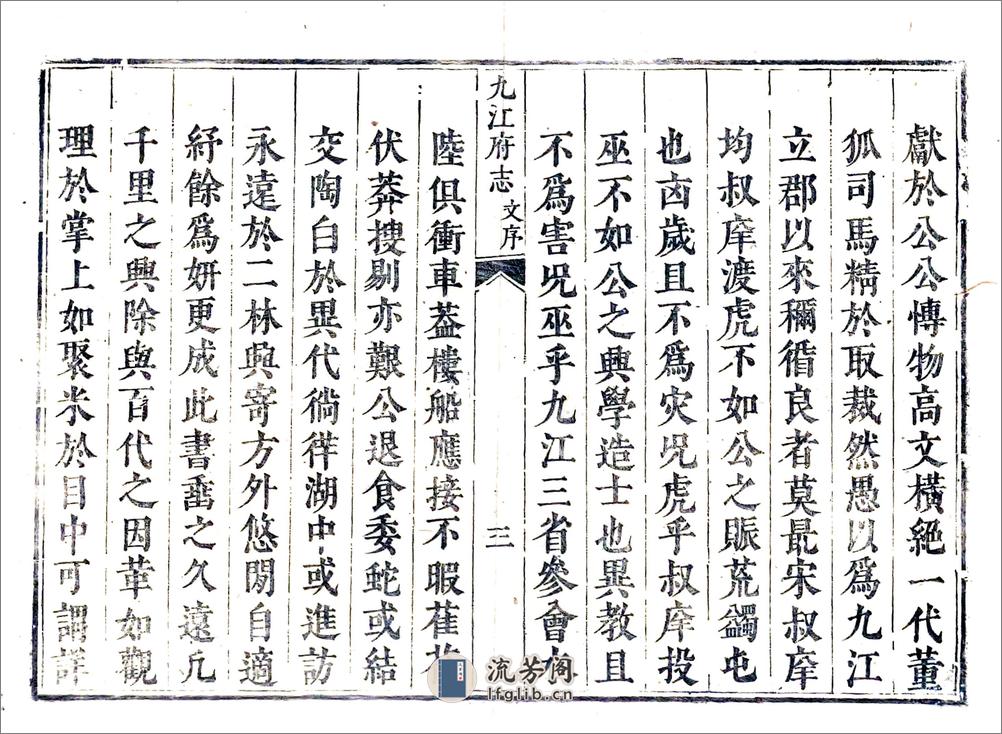 獻於公公慱物高文橫絕一代董
狐司馬精於取裁然愚以爲九江
立郡以來稱循良者莫最宋叔庠
均叔庠渡虎不如公之賑荒蠲屯
也凶歲且不爲灾况虎乎叔庠投
巫不如公之興學造士也異教且
不爲害况巫乎九江三省參會水
九江府志 文序 三
陸俱衝車葢樓船應接不暇萑苻
伏莽搜剔亦艱公退食委蛇或結
交陶白於異代徜徉湖中或進訪
永遠於二林興寄方外悠閒自適
紓餘爲妍更成此書垂之久遠凡
千里之興除與百代之因革如觀
理於掌上如聚米於目中可謂詳
流芳阁
lfglib.cn